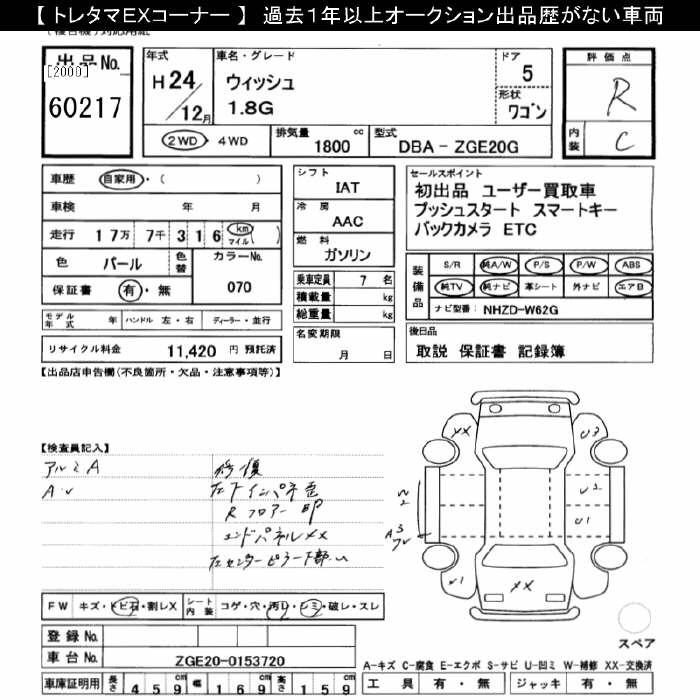 【 トレタマEXコーナー 】 過去１年以上オークション出品歴がない車両
出品No.
[2000]
60217
年式
H 24/12月
車名・グレード
ウィッシュ
1.8G
ドア
5
形状
ワゴン
2WD・4WD
排気量 1800 cc
型式 DBA - ZGE20G
評価点
R
内装
C
車歴 自家用・( )
車検 年 月
走行 17万 7千 316 km マイル ( )
色 パール
色替
カラーNo. 070
保証書 有・無
モデル年式 年 ハンドル 左・右 ディーラー・並行
リサイクル料金 11,420 円 預託済
シフト
IAT
冷房
AAC
燃料
ガソリン
乗車定員 7 名
積載量 kg
総重量 kg
名変期限
月 日
セールスポイント
初出品 ユーザー買取車
プッシュスタート スマートキー
バックカメラ ETC
装備品
S/R 純A/W P/S P/W ABS
純TV 純ナビ 革シート 外ナビ エアB
ナビ型番: NHZD-W62G
後日品
取説 保証書 記録簿
【出品店申告欄(不良箇所・欠品・注意事項等)】
【検査員記入】
アルミA
修復
Rフロアー
エンドパネルXX
左センターピラー下部
XX
U3
U2
U1
XX
FW キズ・トビ石・割レX
シート内装 コゲ・穴・汚レ・シミ・破レ・スレ
登録No.
車台No. ZGE20-0153720
車庫証明用 長さ 459 幅 169 高さ 159
スペア
A-キズ C-腐食 E-エクボ S-サビ U-凹ミ W-補修 XX-交換済
工具 有・無 ジャッキ 有・無